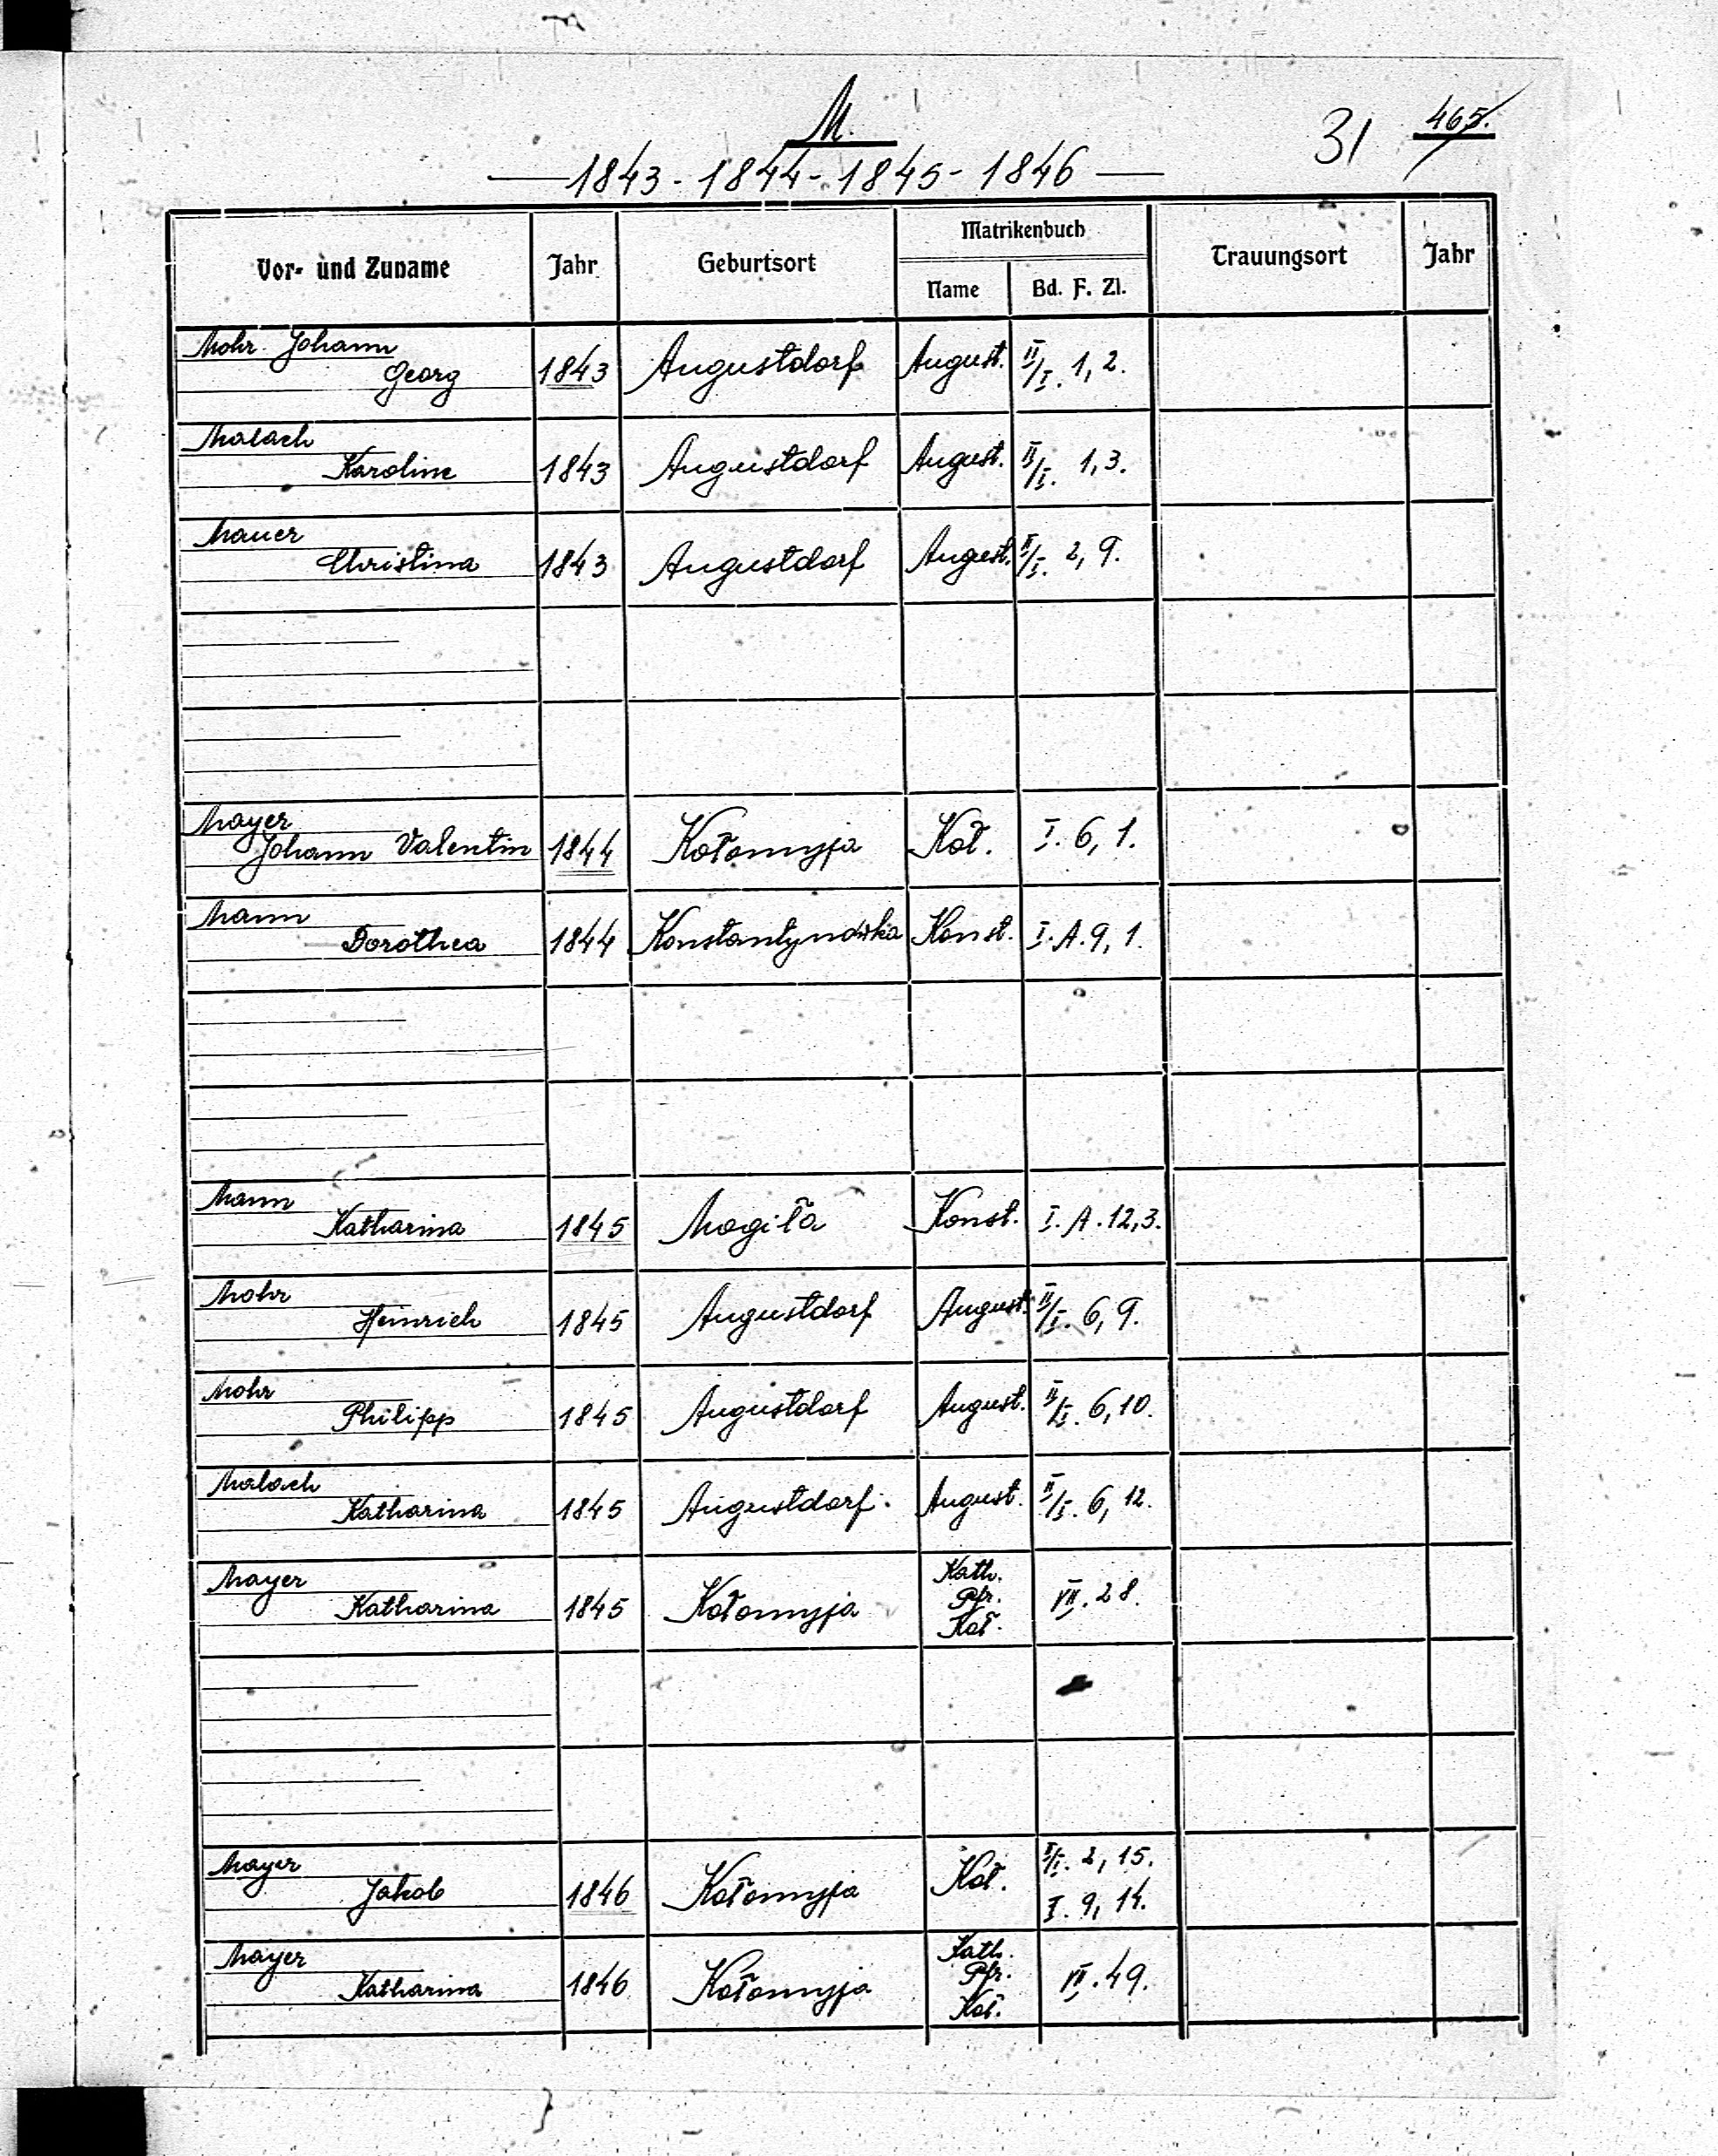 M.
31 465.
— 1843 - 1844 - 1845 - 1846 —
Vor- und Zuname Jahr Geburtsort Matrikenbuch Trauungsort Jahr
Name Bd. F. Zl.
Mohr Johann
Georg 1843 Augustdorf August. II/I. 1, 2.
Malach
Karoline 1843 Augustdorf August. II/I. 1, 3.
Mauer
Christina 1843 Augustdorf August. II/I. 2, 9.
Mayer
Johann Valentin 1844 Kołomyja Koł. I. 6, 1.
Mann
Dorothea 1844 Konstantynówka Konst. I. A. 9, 1.
Mann
Katharina 1845 Mogiła Konst. I. A. 12, 3.
Mohr
Heinrich 1845 Augustdorf August. II/I. 6, 9.
Mohr
Philipp 1845 Augustdorf August. II/I. 6, 10.
Malach
Katharina 1845 Augustdorf. August. II/I. 6, 12.
Mayer
Katharina 1845 Kołomyja Kath. Pfr. Koł. VII. 28.
Mayer
Jakob 1846 Kołomyja Koł. I/I. 2, 15.
I. 9, 14.
Mayer
Katharina 1846 Kołomyja Kath. Pfr. Koł. VII. 49.